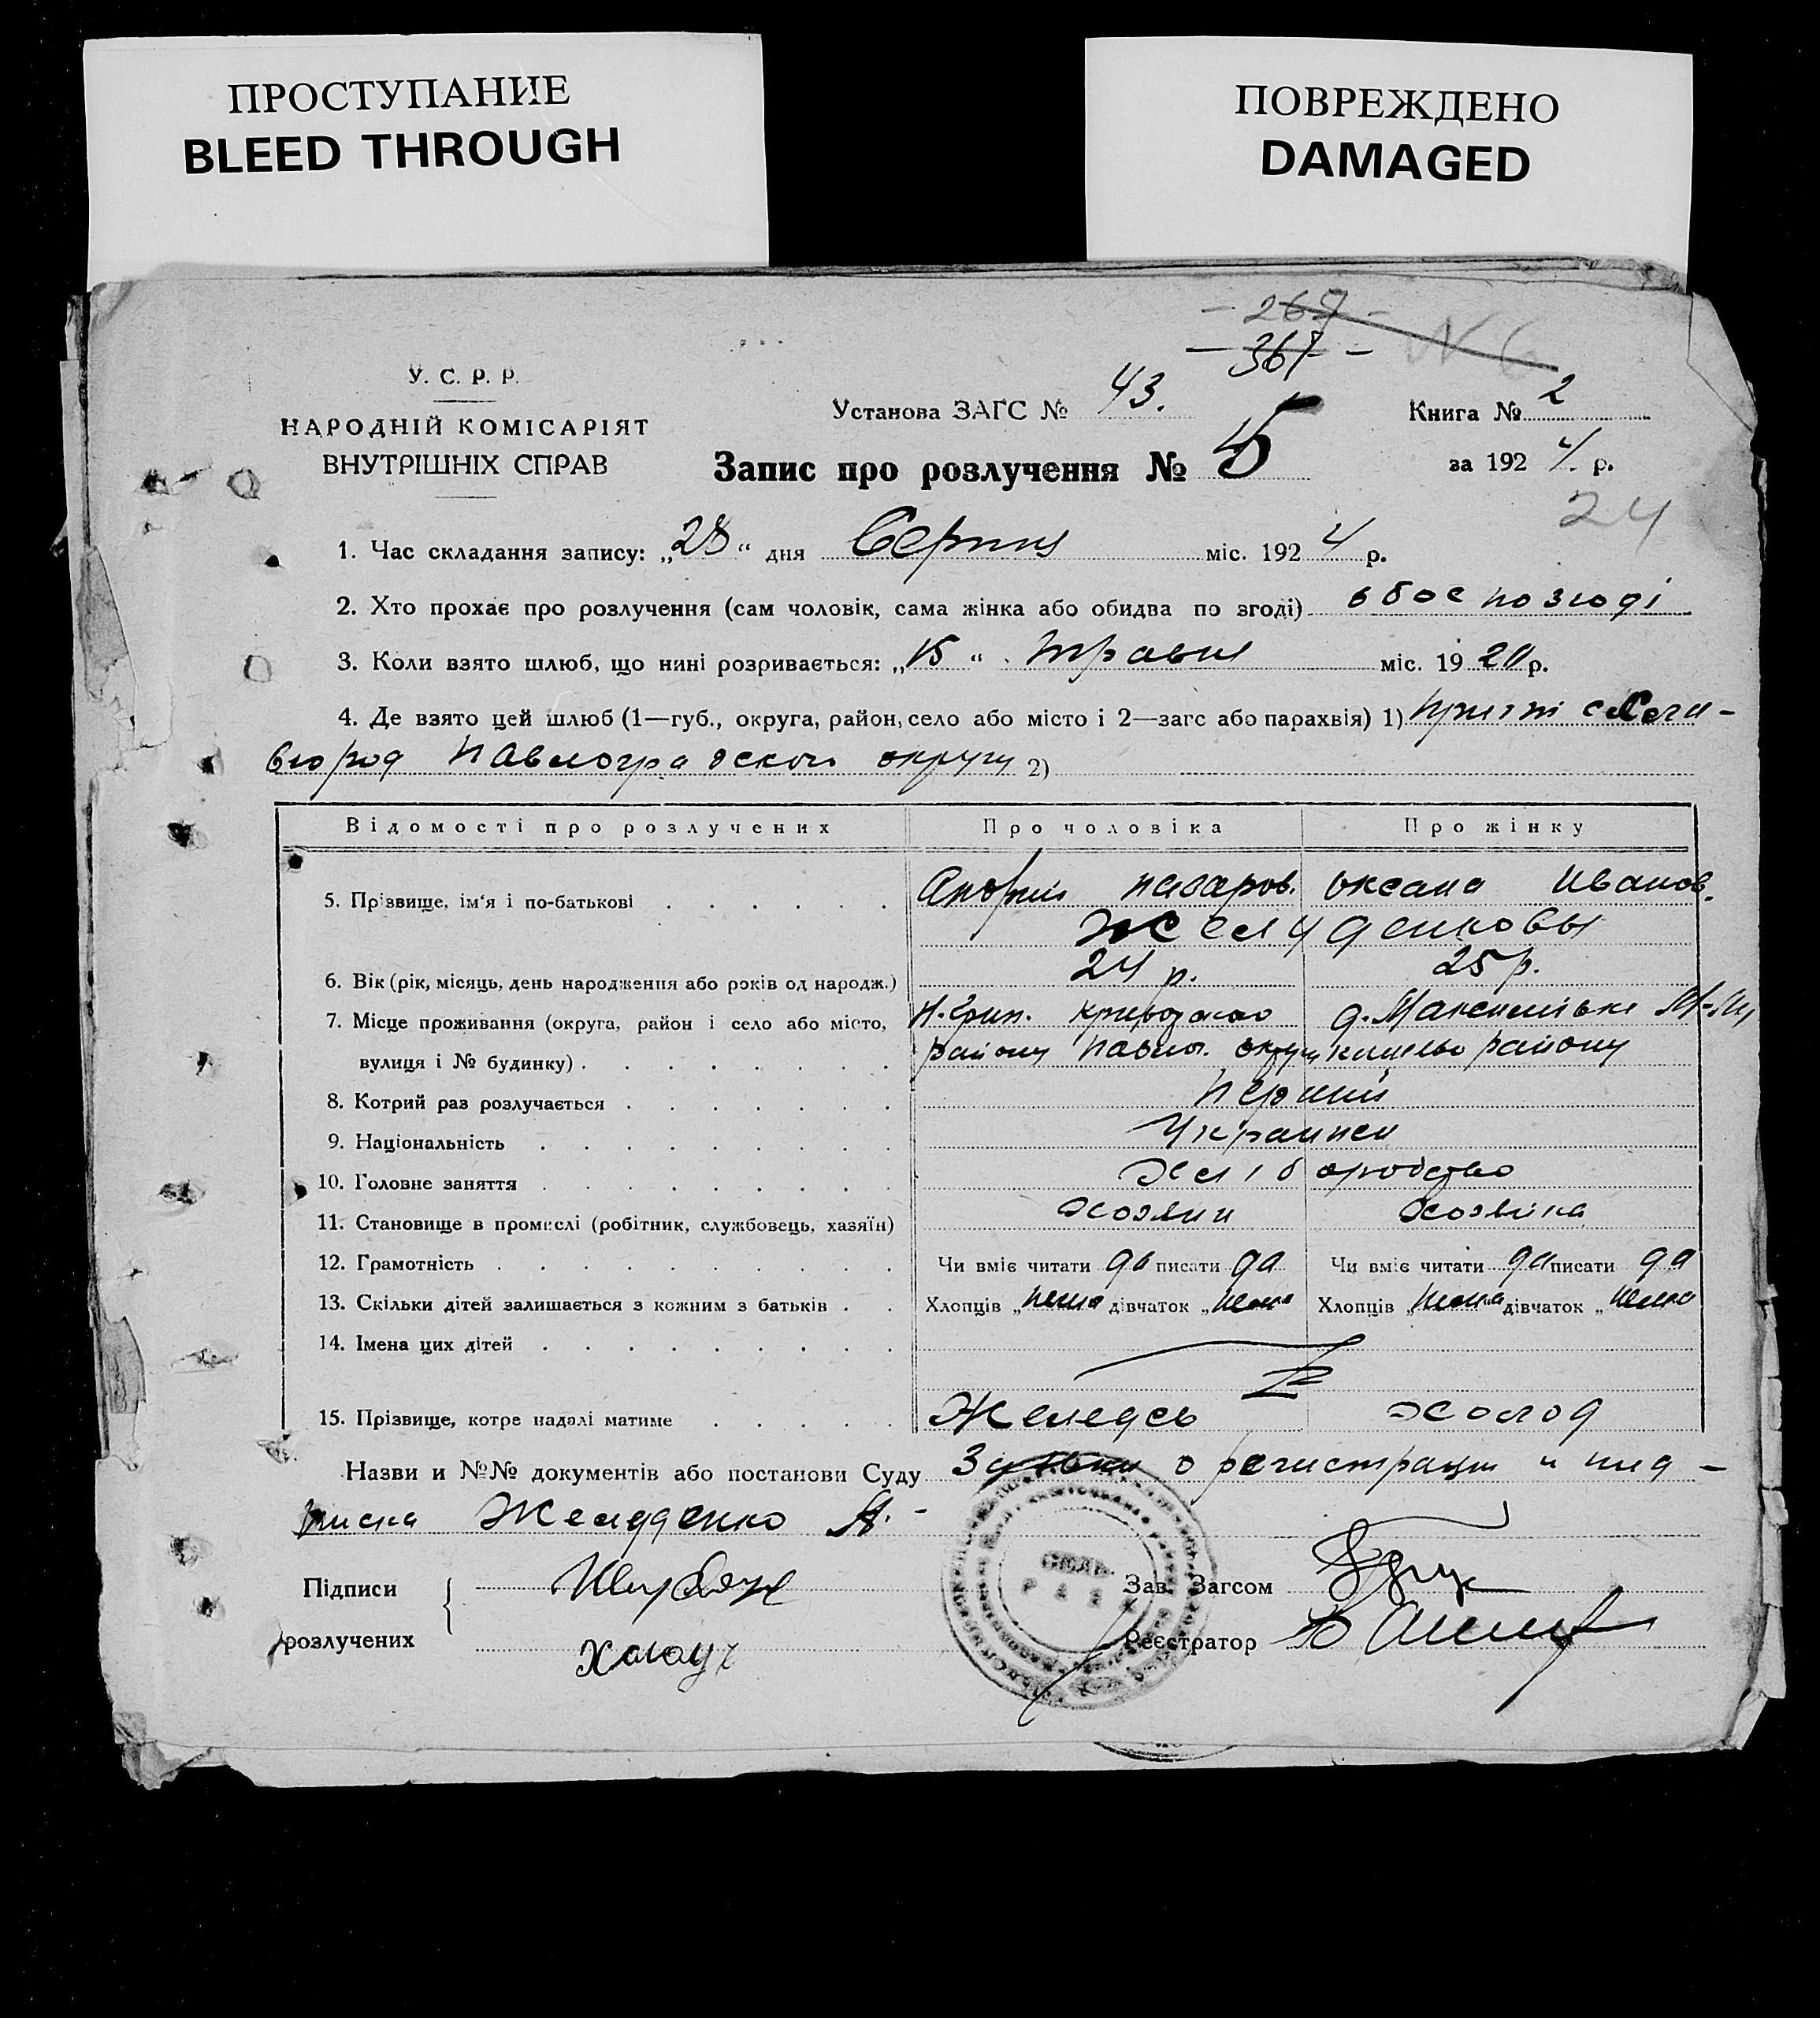 ПРОСТУПАНИЕ
BLEED THROUGH
ПОВРЕЖДЕНО
DAMAGED
- 267 -
- 367 -
N 6
У. С. Р. Р.
НАРОДНІЙ КОМІСАРІЯТ
ВНУТРІШНІХ СПРАВ
Установа ЗАГС № 43.
Книга № 2
Запис про розлучення № 5
за 1924. р.
24
1. Час складання запису: „28“ дня Серпня міс. 1924 р.
2. Хто прохає про розлучення (сам чоловік, сама жінка або обидва по згоді) обоє по згоді
3. Коли взято шлюб, що нині розривається: „15“ Травня міс. 1920 р.
4. Де взято цей шлюб (1—губ., округа, район, село або місто і 2—загс або парахвія) 1)
Павлоградскои округи 2)
Відомості про розлучених Про чоловіка Про жінку
5. Прізвище, ім'я і по-батькові Андрій Назаров. Оксана Иванов.
Желуденковы
6. Вік (рік, місяць, день народження або років од народж.) 24 р. 25 р.
7. Місце проживання (округа, район і село або місто, 
вулиця і № будинку) району Павлог. округи району
8. Котрий раз розлучається Первий
9. Національність Украинси
10. Головне заняття Хліборобство
11. Становище в промислі (робітник, службовець, хазяїн) Хозяин Хозяйка
12. Грамотність Чи вміє читати да писати да Чи вміє читати да писати да
13. Скільки дітей залишається з кожним з батьків Хлопців „нема дівчаток „нема Хлопців „нема дівчаток „нема
14. Імена цих дітей
15. Прізвище, котре надалі матиме Желудь Холод
Назви и №№ документів або постанови Суду о регистрации и под-
писка Желуденко А.
Підписи
розлучених
Зав. Загсом
Реєстратор